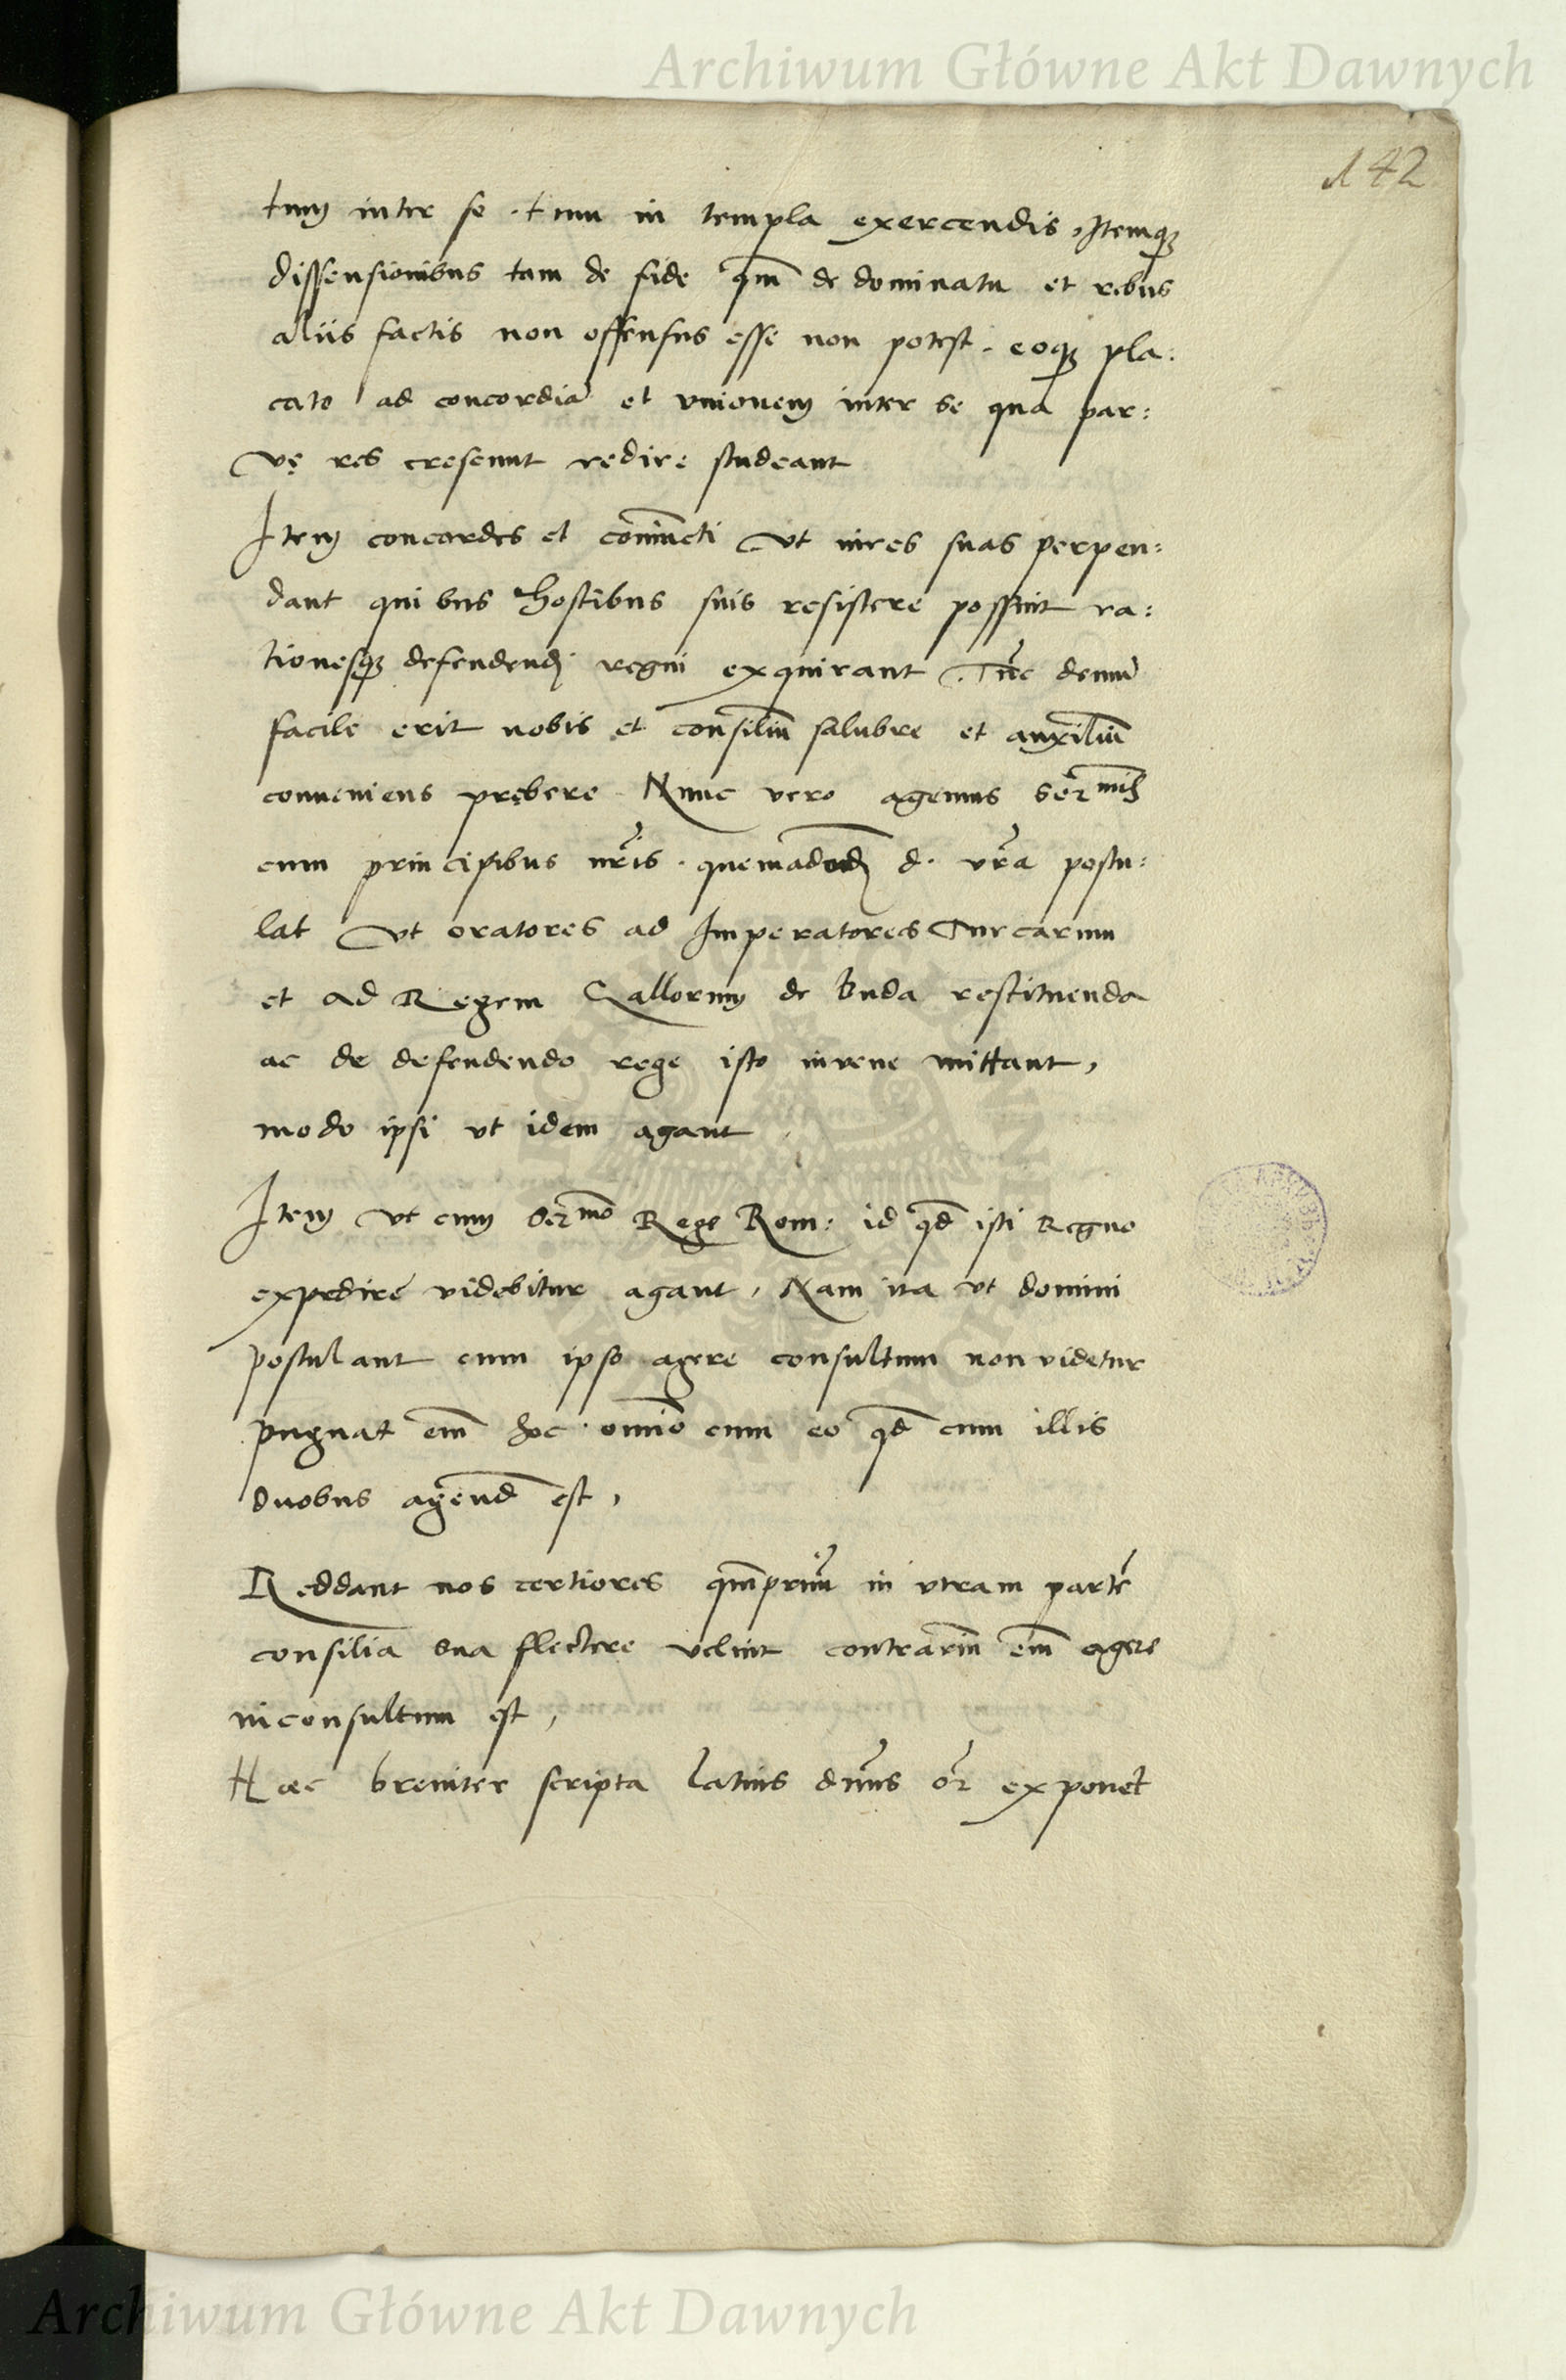 Archiwum Główne Akt Dawnych
142
tum inter se tum in templa exercendis, Itemq₃
dissensionibus tam de fide q̃m de dominatu et rebus
aliis factis non offensus esse non potest. eoq₃ pla:
cato ad concordiã et vnionem inter se qua par:
vę res crescunt redire studeant
Item concordes et coniũcti vt uires suas perpen:
dant quibus hostibus suis resistere possint ra:
tionesq₃ defendendj regni exquirant. Tũc demũ
facile erit nobis et consiliũ salubre et auxiliũ
conueniens prębere. Nunc vero agemus Ser^mis
cum principibus nr̃is. quemadmodũ d. vr̃a postu:
lat vt oratores ad Imperatores Turcarum
et ad Regem Gallorum de Buda restituenda
ac de defendendo rege isto iuvene mittant,
modo ipsi vt idem agant
Item vt cum Ser^mo Rege Rom: id qd̃ isti Regno
expedire videbitur agant, Nam ita vt domini
postulant cum ipso agere consultum non videtur
pugnat em̃ hoc omñio cum eo qd̃ cum illis
duobus agend̃ est,
Reddant nos certiores q̃mprimũ in vtram partẽ
consilia sua flectere velint contrariũ em̃ agere
inconsultum est,
Hæc breuiter scripta latius dñus or̃ exponet
Archiwum Główne Akt Dawnych